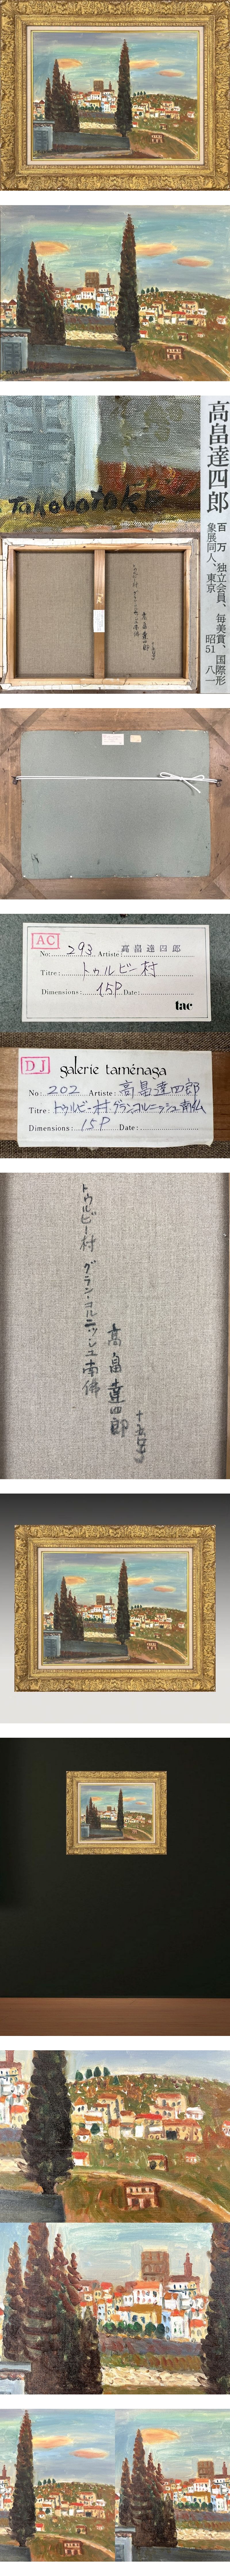 Takabatake
高畠達四郎
百 万 独立会員、毎美賞、国際形
象展同人、東京 昭51 八一
AC
No: 293 Artiste: 高畠達四郎
Titre: トゥルビー村
Dimensions: 15P Date:
tac
DJ galerie taménaga
No: 202 Artiste: 高畠達四郎
Titre: トゥルビー村.グランコルニッシュ南仏
Dimensions: 15P Date:
トゥルビー村 グラン・コルニッシュ南佛
高畠達四郎
十五号